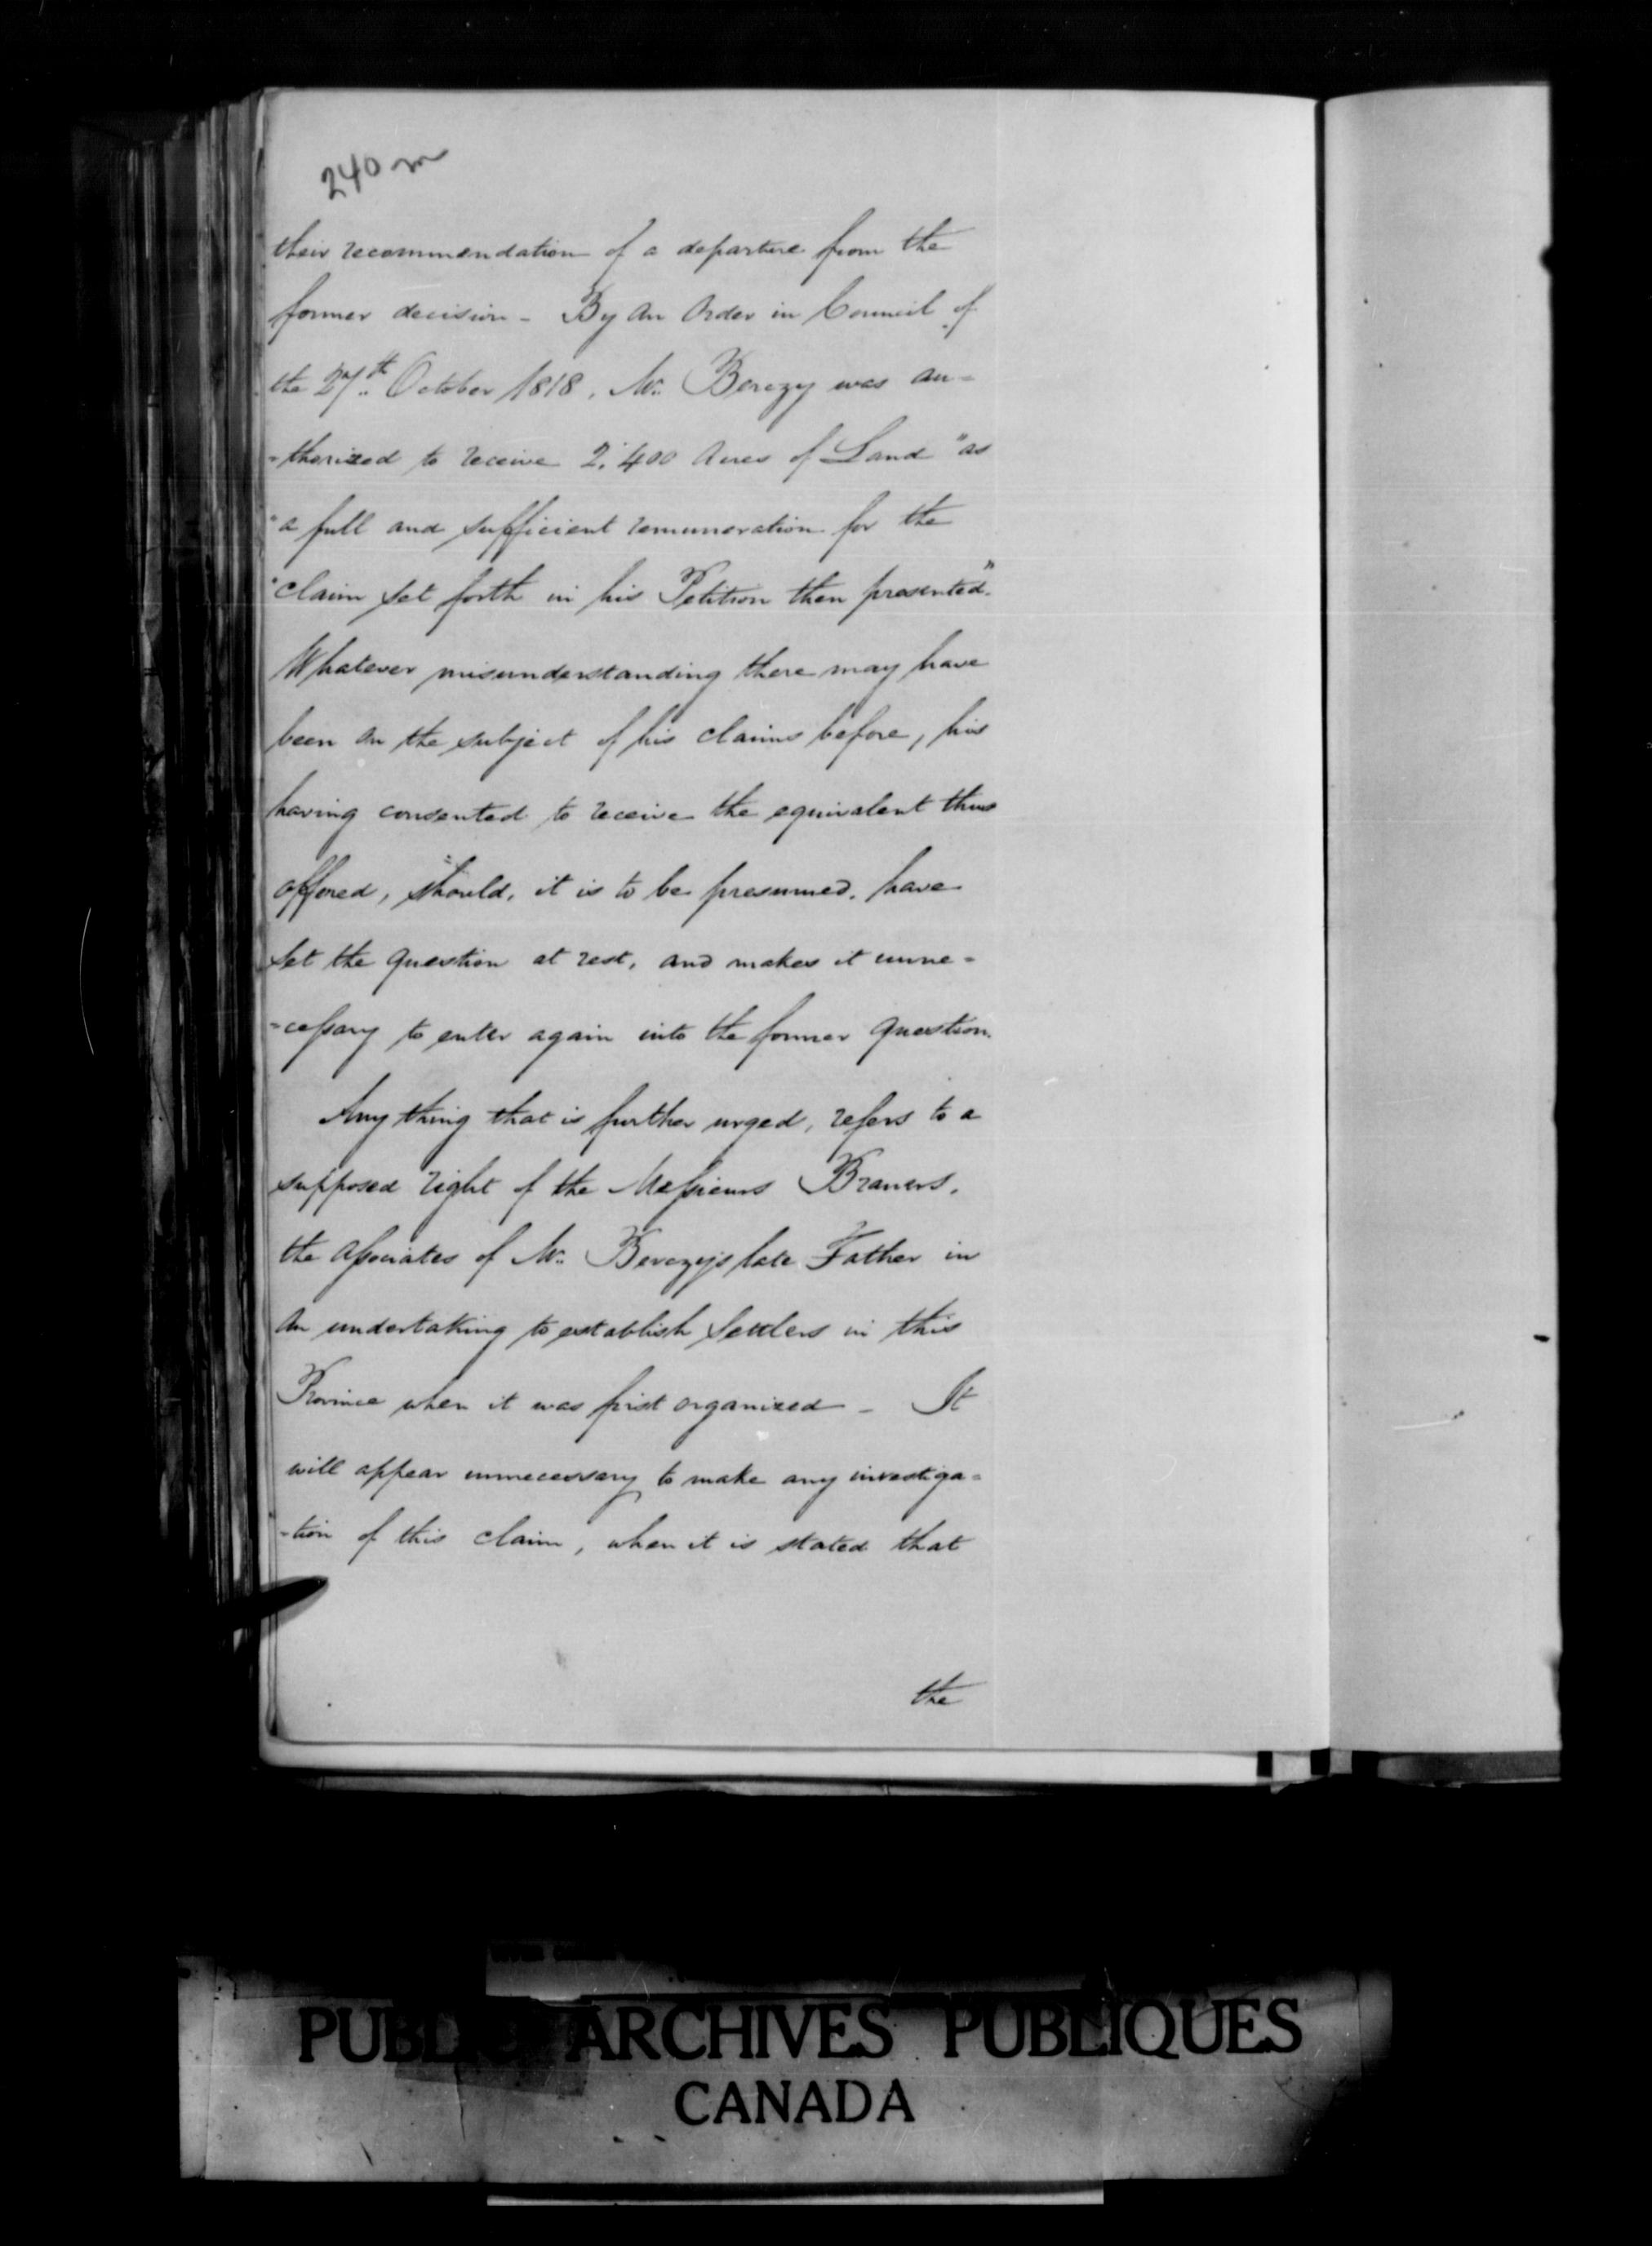 240 m
their recommendation of a departure from the
former decision - By an Order in Council of
the 27th October 1818, Mr. Berczy was au=
=thorized to receive 2,400 Acres of Land "as
"a full and sufficient remuneration for the
"claim set forth in his Petition then presented."
Whatever misunderstanding there may have
been on the subject of his claims before, his
having consented to receive the equivalent thus
offered, should, it is to be presumed, have
set the question at rest, and makes it unne=
=cessary to enter again into the former question.
Any thing that is further urged, refers to a
supposed right of the Messieurs
the Associates of Mr. Berczy's late Father in
an undertaking to establish Settlers in this
Province when it was first organized - It
will appear unnecessary to make any investiga=
=tion of this claim, when it is stated that
the
PUBLIC ARCHIVES PUBLIQUES
CANADA